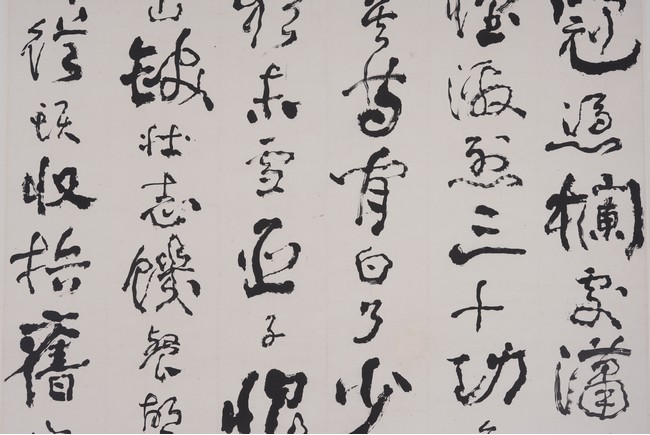 冠憑欄處瀟
懷激烈三十功
等閒白了少
猶未雪臣子恨
山缺壯志饑餐胡
從頭收拾舊